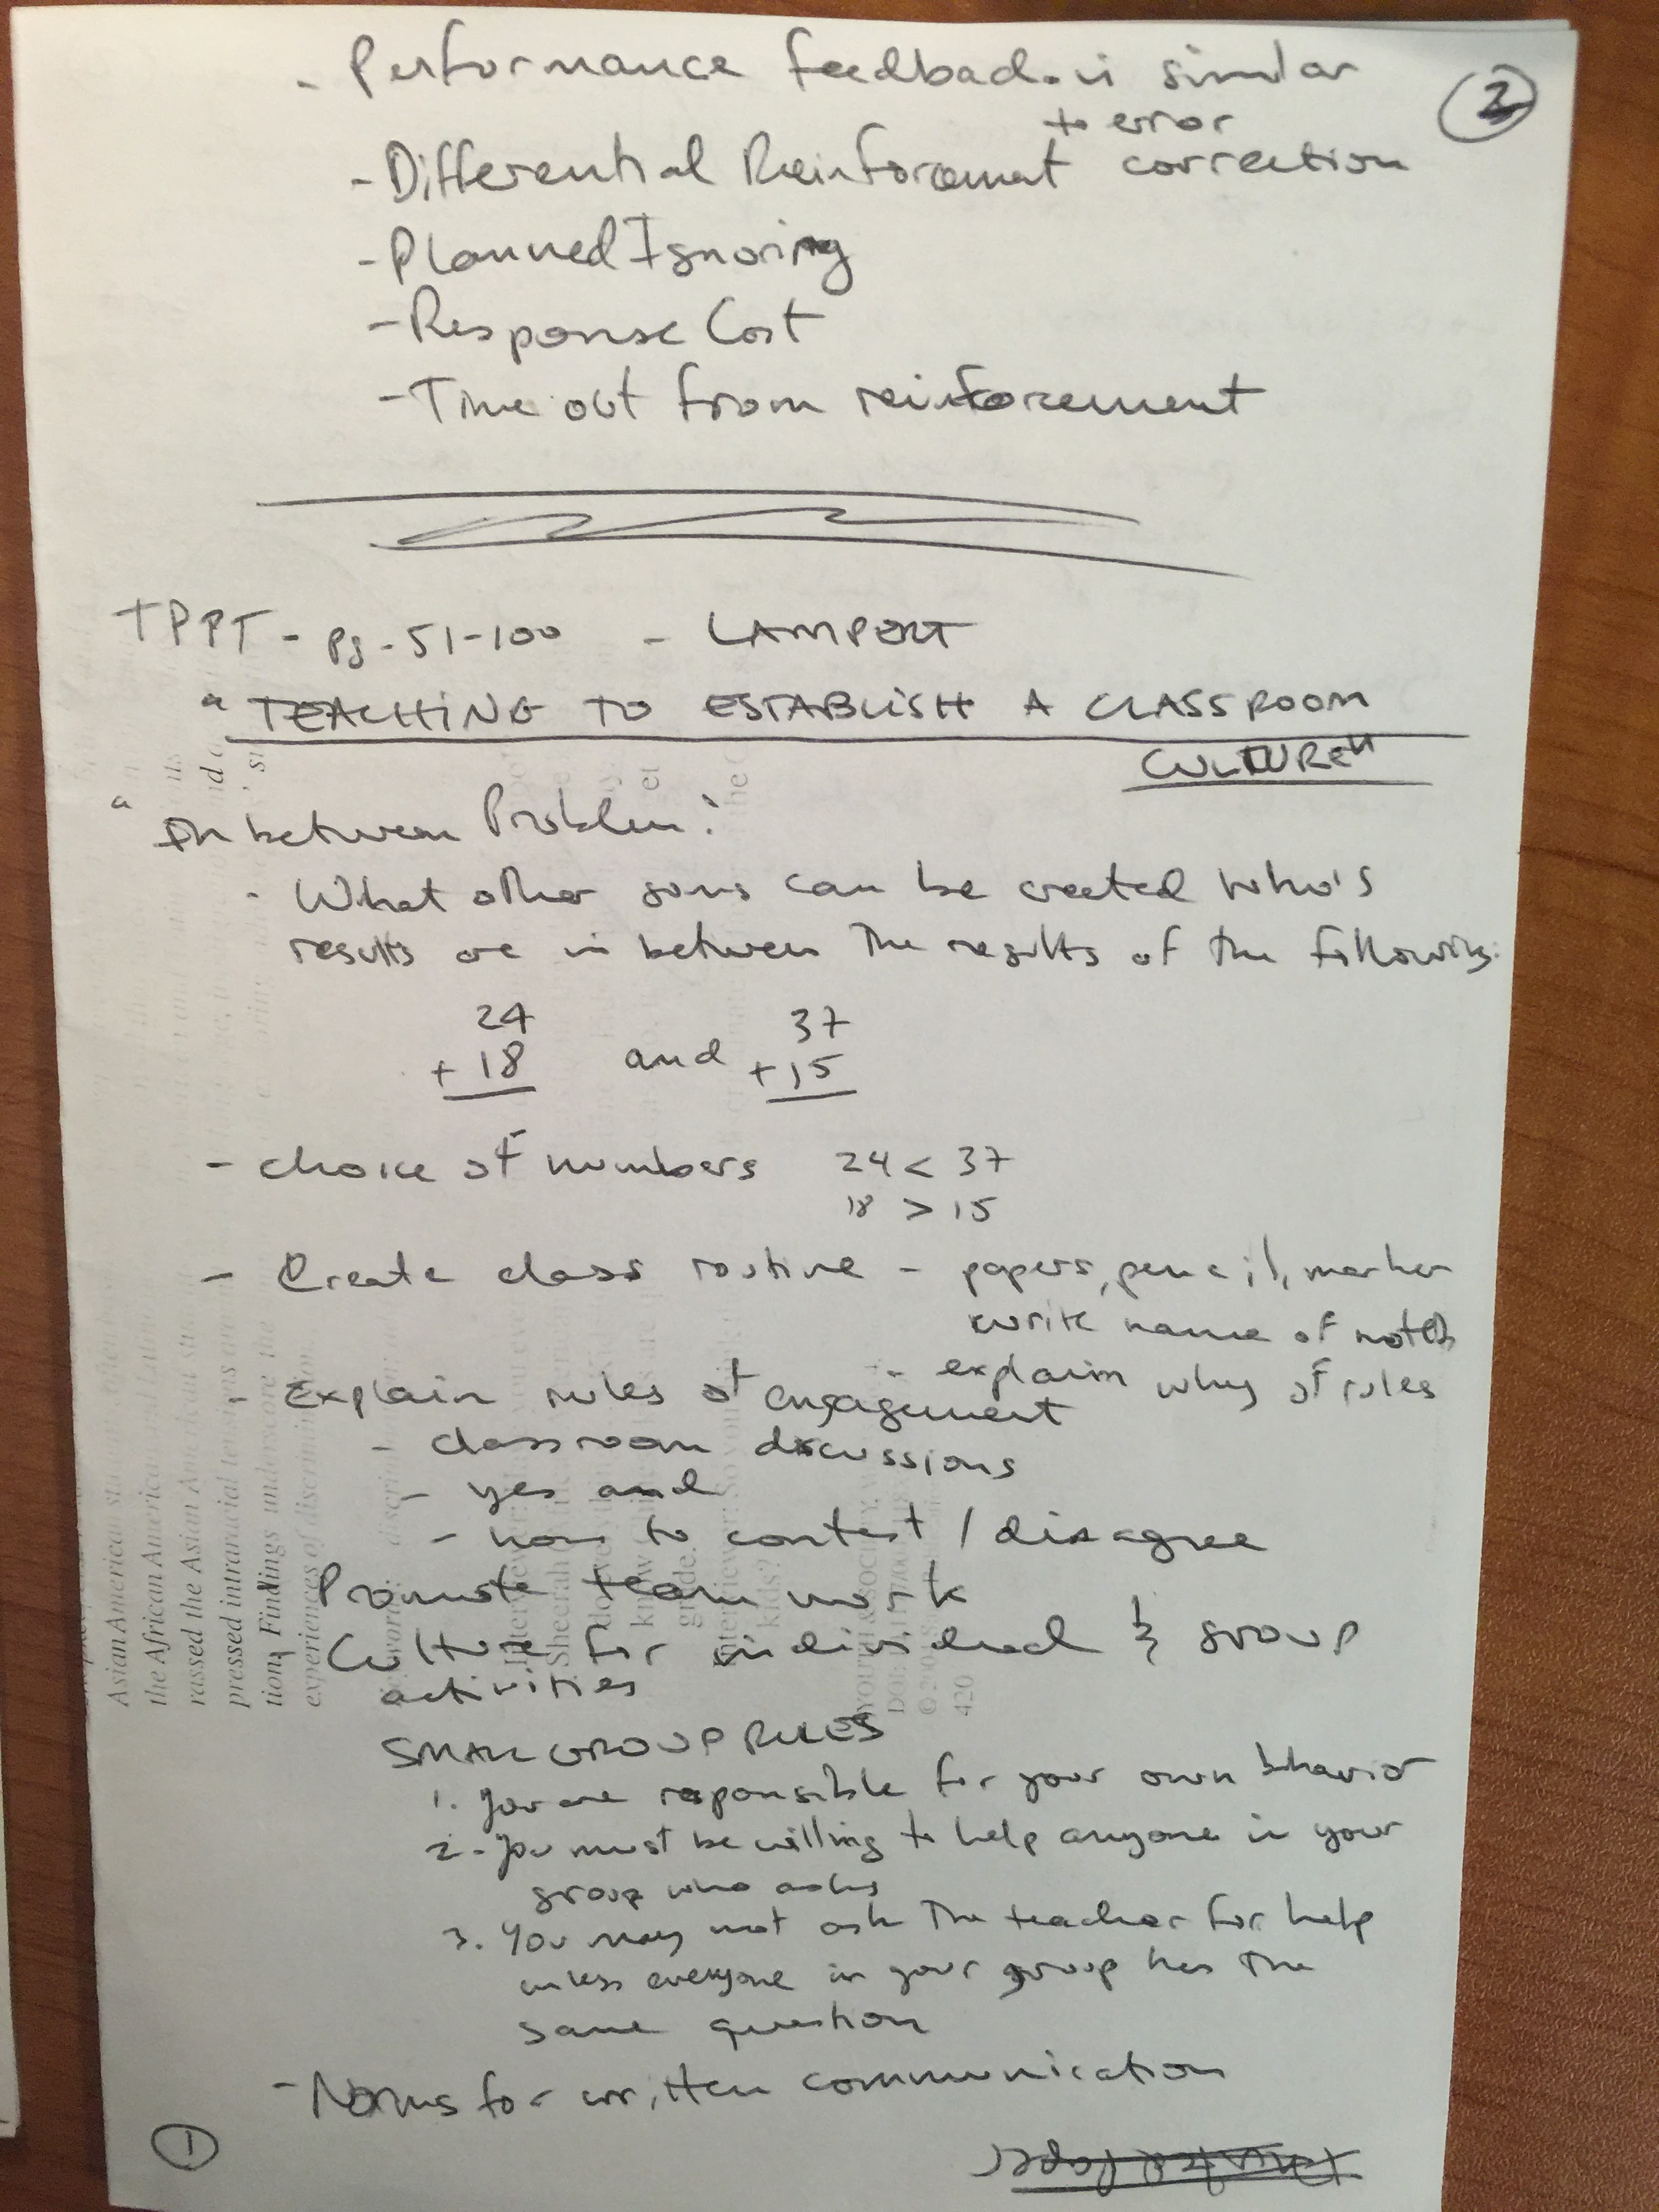 - Performance feedback is similar
to error
②
- Differential Reinforcement correction
- Planned Ignoring
- Response Cost
- Time out from reinforcement
TPPT - pg - 51-100 - LAMPERT
" TEACHING TO ESTABLISH A CLASSROOM
CULTURE"
" In between Problem:
- What other sums can be created who's
results are in between the results of the following:
24 37
+ 18 and + 15
- choice of numbers 24 < 37
18 > 15
- Create class routine - papers, pencil, marker
write name of
- explain why of rules
- Explain rules of engagement
- classroom discussions
- yes and
- how to contest / disagree
Promote team work
- Culture for individual & group
activities
SMALL GROUP RULES
1. You are responsible for your own behavior
2. You must be willing to help anyone in your
group who asks
3. You may not ask the teacher for help
unless everyone in your group has the
same question
- Norms for written communication
①
Asian American
the African American
rassed the Asian
pressed intraracial
tion. Findings underscore the
experiences of discrimination
420